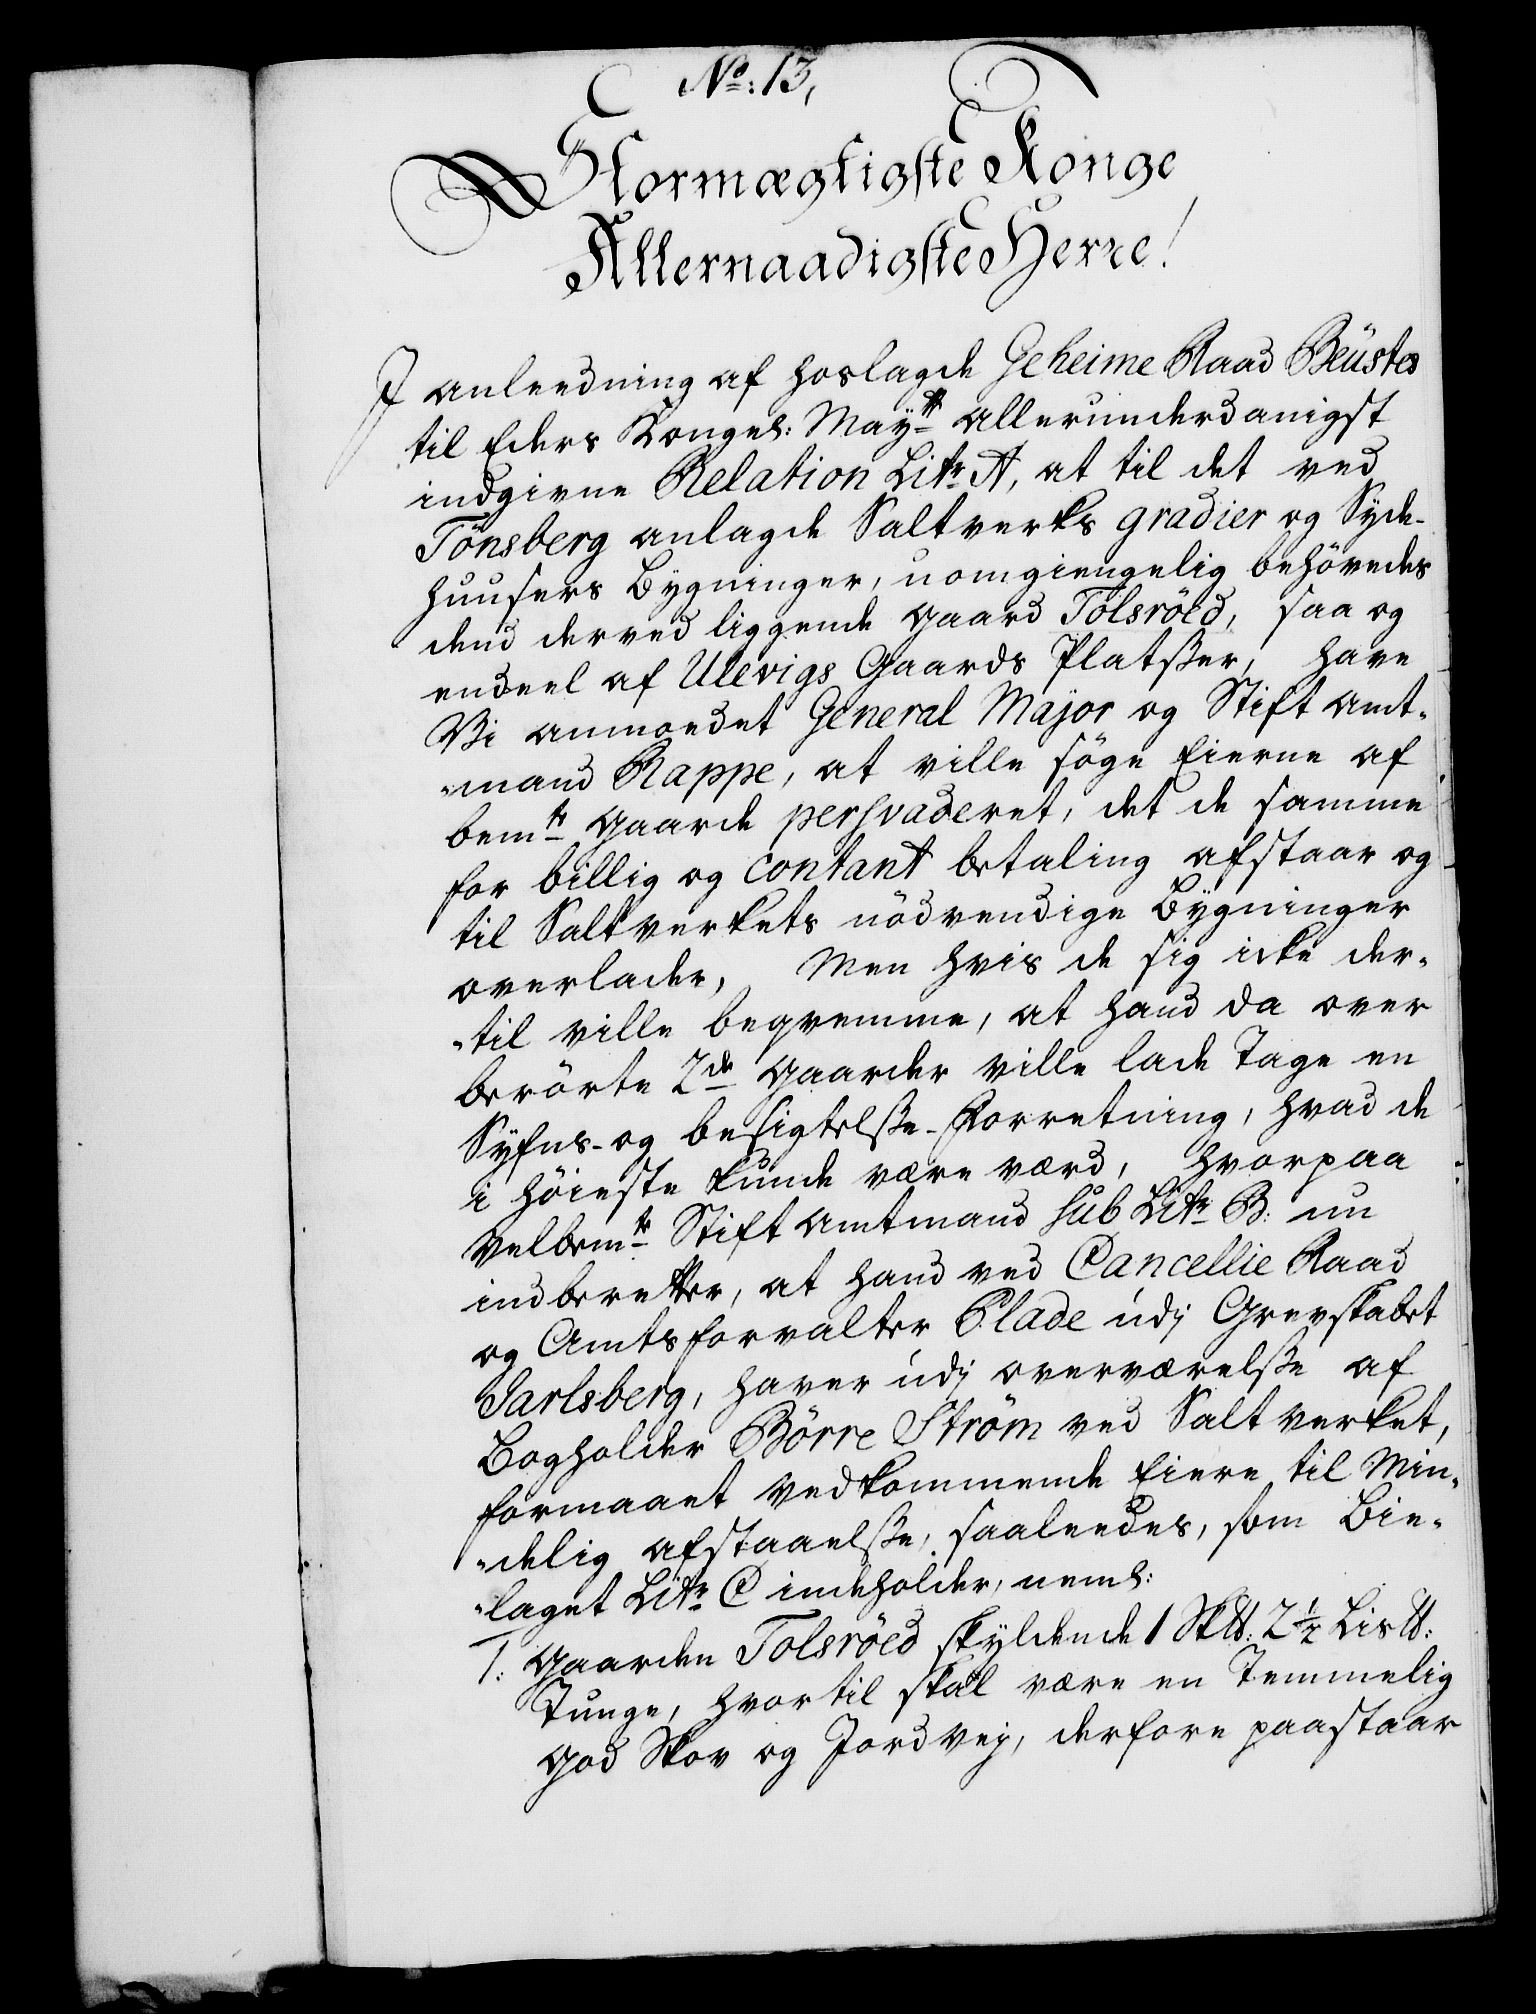 No: 13,
Stormægtigste Konge
Allernaadigste Herre!
I anleedning af hoslagde Geheime Raad Beüstes
til Eders Kongel: Mayts allerunderdanigst
indgivne Relation Litr A, at til det ved
Tönsberg anlagde Saltverks gradier og Syde-
huusers Bygninger, uomgiengelig behövedes
dend derved liggende gaard Tolsröed, saa og
endeel af Ulevigs Gaards Platsser, have
Vi anmoedet General Major og Stift Amt-
-mand Rappe, at ville söge Eierne af
bemte gaarde persvaderet, det de samme
for billig og contant betaling afstaar og
til Saltverkets nödvendige Bygninger
overlader, Men hvis de sig icke der-
-til ville beqvemme, at hand da over
berörte 2de gaarder ville lade Tage en
Syfns- og besigtelsse-Forretning, hvad de
i höieste kunde være værd, hvorpaa
velbemte Stift Amtmand sub Litr B: nu
indberetter, at hand ved Cancellie Raad
og Amtsforvalter Plade udj Grevskabet
Jarlsberg, haver udj overværelsse af
Bogholder Börre Ström ved Saltverket,
formaaet vedkommende Eiere til Min-
-delig afstaaelsse, saaleedes, som Bie-
-laget Litr C indeholder, neml:
1: Gaarden Tolsröed skyldende 1 Skll: 2½ Lisll:
Tunge, hvortil skal være en Temmelig
god Skov og Jordvej, derfore paastaar